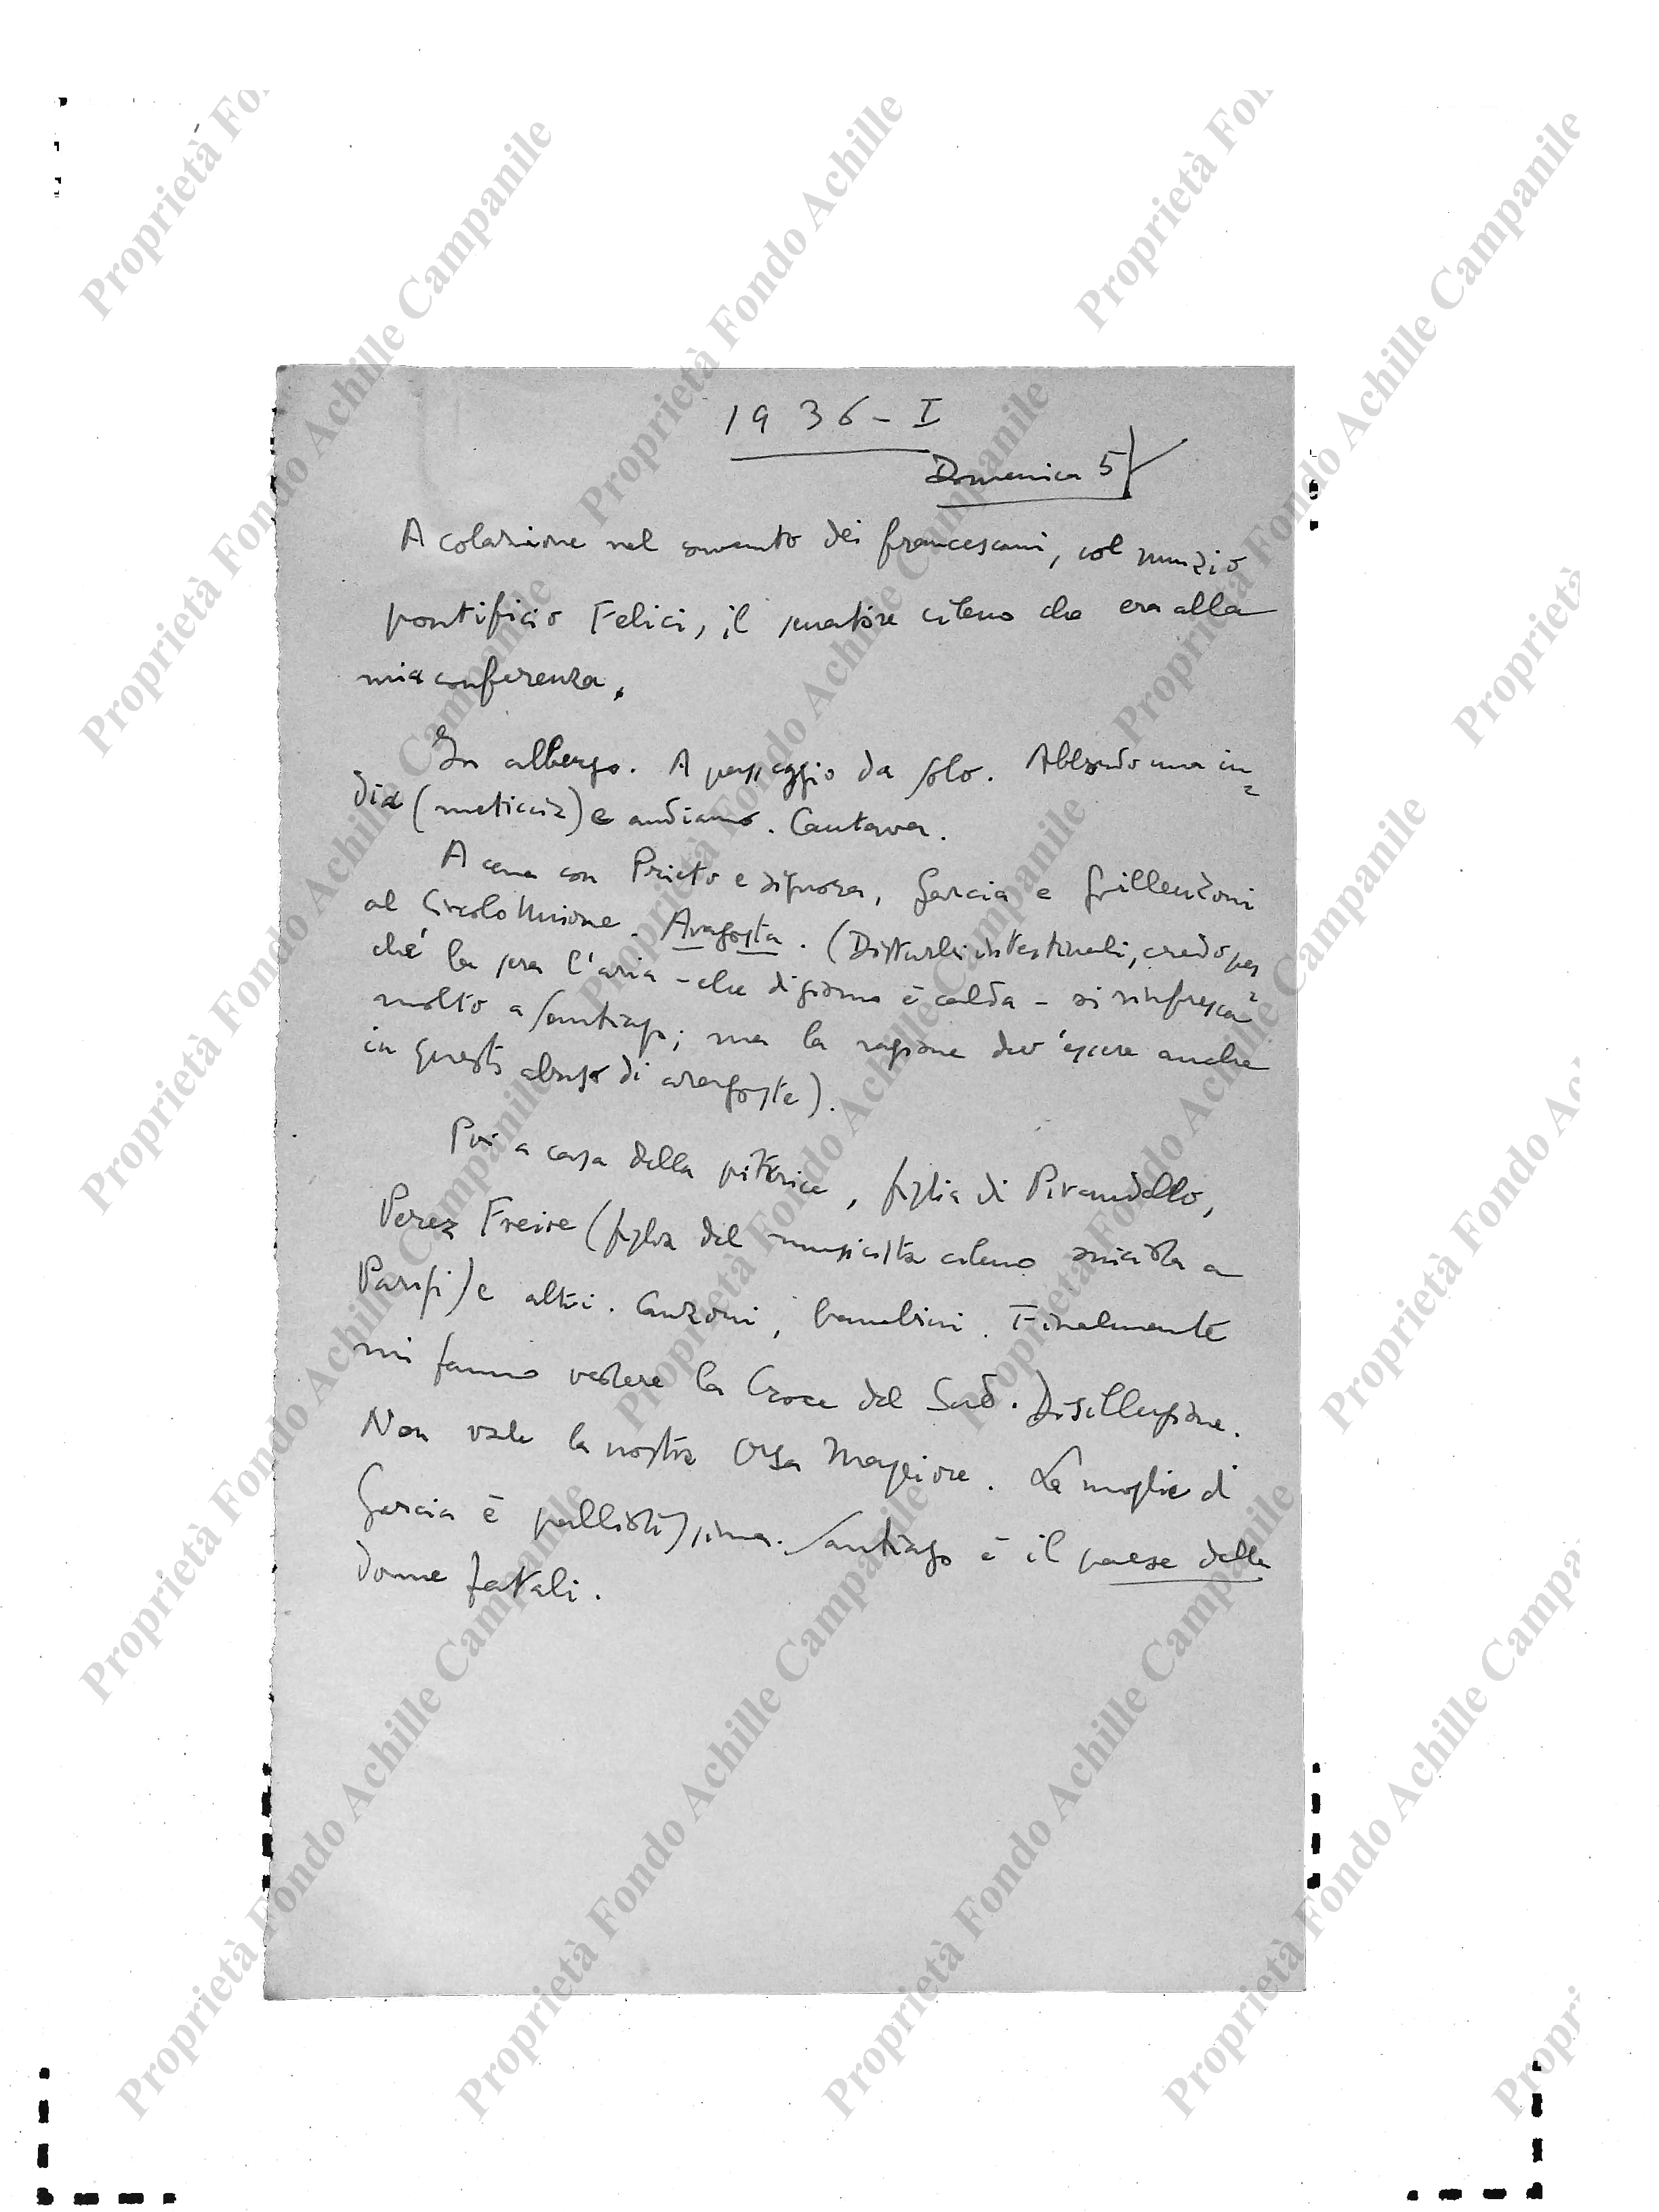 1936 - I
Domenica 5
A colazione nel convento dei francescani, col nunzio
pontificio Felici, il senatore cileno che era alla
mia conferenza.
In albergo. A passeggio da solo. Abbordo una in=
dia (meticcia) e andiamo. Cantava.
A cena con Prieto e signora, Garcia e Grillenzoni
al Circolo Unione. Aragosta. (Disturbi intestinali, credo per=
ché la sera l'aria - che di giorno è calda - si rinfresca
molto a Santiago; ma la ragione dev'essere anche
in questo abuso di aragoste).
Poi a casa della pittrice, figlia di Pirandello,
Perez Freire (figlia del musicista cileno suicida a
Parigi) e altri. Canzoni, bambini. Finalmente
mi fanno vedere la Croce del Sud. Disillusione.
Non vale la nostra Orsa Maggiore. La moglie di
Garcia è pallidissima. Santiago è il paese delle
donne fatali.
Proprietà Fondo Achille Campanile